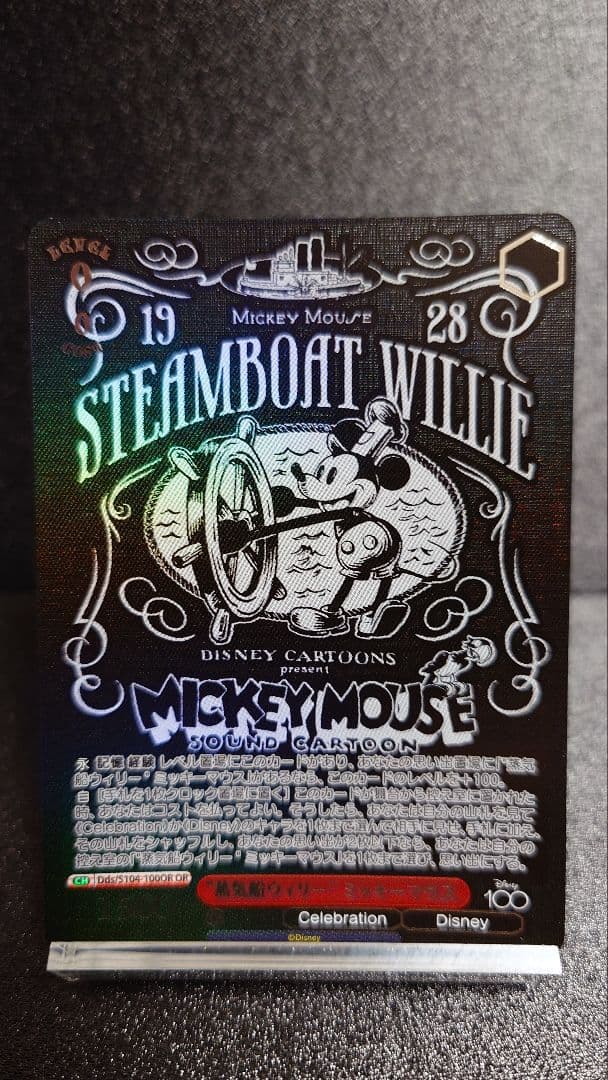 LEVEL
0
19 MICKEY MOUSE 28
0
COST
STEAMBOAT WILLIE
DISNEY CARTOONS
present
MICKEY MOUSE
SOUND CARTOON
永 記憶 経験 レベル置場にこのカードがあり、あなたの思い出置場に「"蒸気
船ウィリー" ミッキーマウス」があるなら、このカードのレベルを+100。
自 [手札を1枚クロック置場に置く] このカードが舞台から控え室に置かれた
時、あなたはコストを払ってよい。そうしたら、あなたは自分の山札を見て
《Celebration》か《Disney》のキャラを1枚まで選んで相手に見せ、手札に加え、
その山札をシャッフルし、あなたの思い出が2枚以下なら、あなたは自分の
控え室の「"蒸気船ウィリー" ミッキーマウス」を1枚まで選び、思い出にする。
CH Dds/S104-100OR OR
"蒸気船ウィリー" ミッキーマウス
Disney
100
Celebration Disney
©Disney